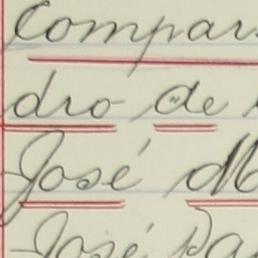 Compar
dro de
José M
José Pa